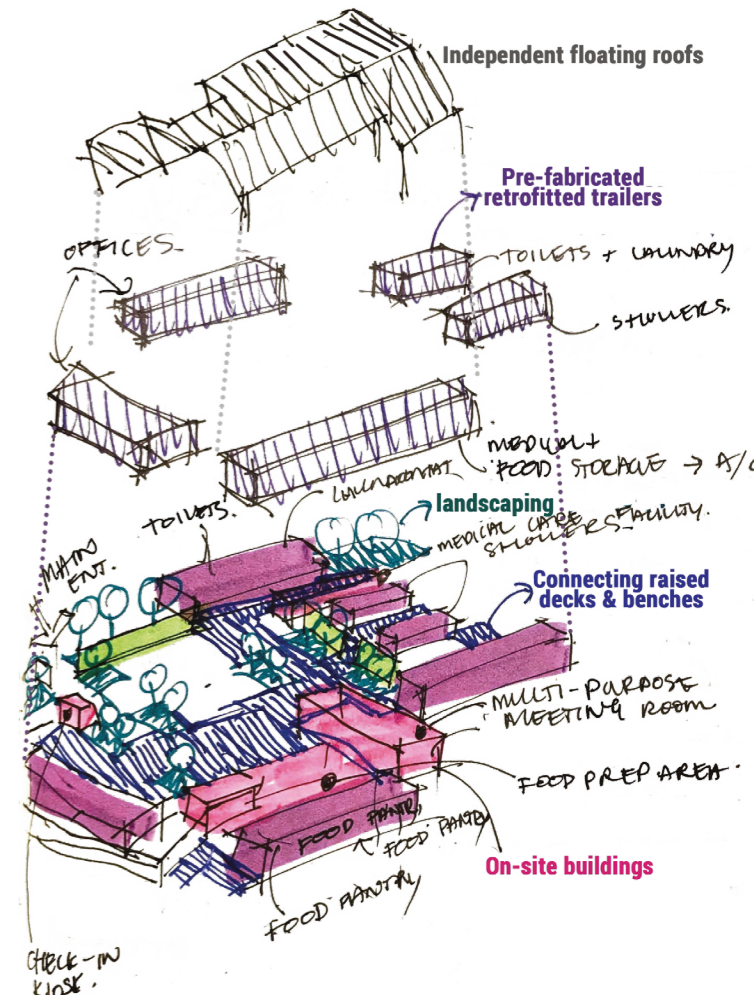 Independent floating roofs
Pre-fabricated
retrofitted trailers
OFFICES
TOILETS + LAUNDRY
SHOWERS.
MEDICAL +
FOOD STORAGE → A/C
LAUNDROMAT
TOILETS.
landscaping
MEDICAL CARE FACILITY.
SHOWERS
MAIN
ENT.
Connecting raised
decks & benches
MULTI-PURPOSE
MEETING ROOM
FOOD PREP AREA.
FOOD PANTRY
FOOD PANTRY
On-site buildings
FOOD PANTRY
CHECK-IN
KIOSK.